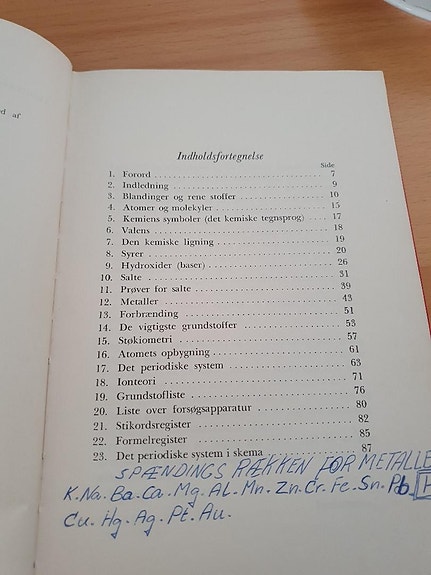 d af
Indholdsfortegnelse
Side
1. Forord 7
2. Indledning 9
3. Blandinger og rene stoffer 10
4. Atomer og molekyler 15
5. Kemiens symboler (det kemiske tegnsprog) 17
6. Valens 18
7. Den kemiske ligning 19
8. Syrer 20
9. Hydroxider (baser) 26
10. Salte 31
11. Prøver for salte 39
12. Metaller 43
13. Forbrænding 51
14. De vigtigste grundstoffer 53
15. Støkiometri 57
16. Atomets opbygning 61
17. Det periodiske system 63
18. Ionteori 71
19. Grundstofliste 76
20. Liste over forsøgsapparatur 80
21. Stikordsregister 82
22. Formelregister 85
23. Det periodiske system i skema 87
SPÆNDINGS RÆKKEN FOR METALLE
K. Na. Ba. Ca. Mg. AL. Mn. Zn. Cr. Fe. Sn. Pb. H
Cu. Hg. Ag. Pt. Au.